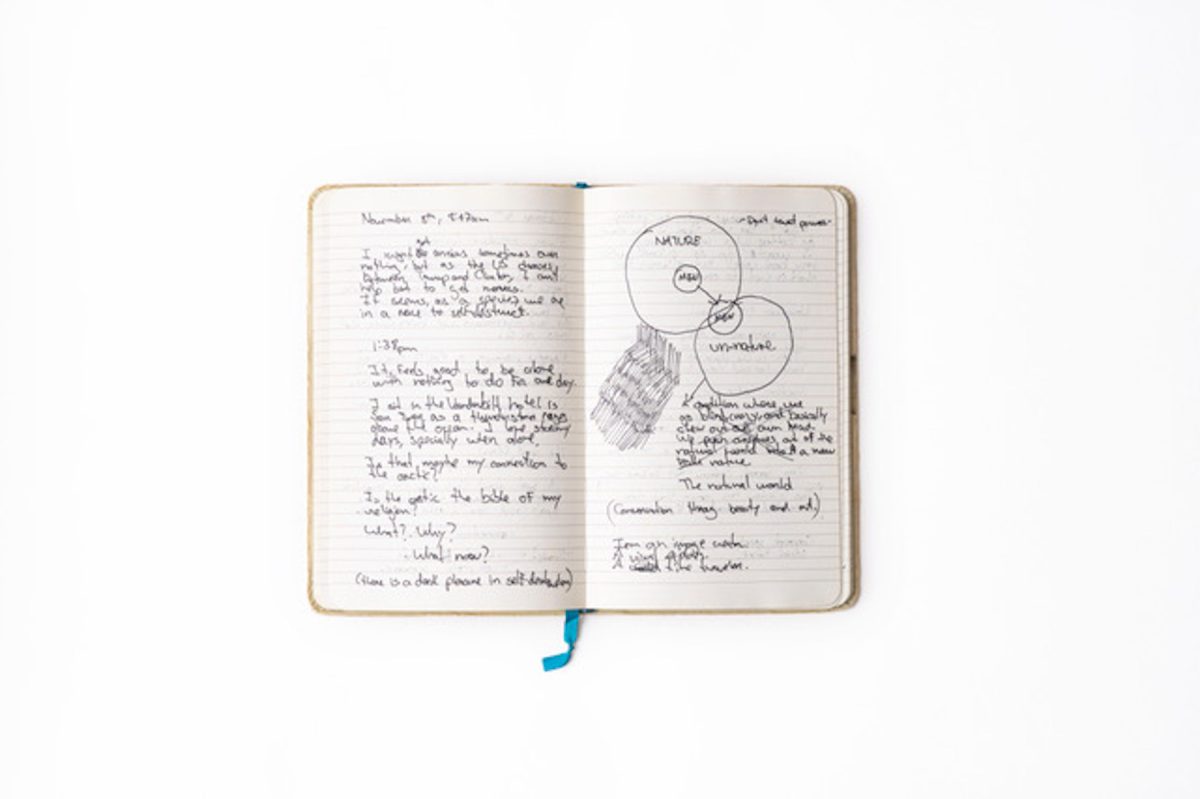 November 8th,
I might get anxious sometimes over
nothing, but as the US chooses
between Trump and Clinton, I can't
help but to get nervous.
It seems, as a species we are
in a race to self-destruct.
1:38pm
It feels good to be alone
with nothing to do for one day.
I sit in the Vanderbilt hotel in
San Juan as a thunderstorm
above the ocean. I love stormy
days, specially when alone.
Is that maybe my connection to
the arctic?
Is the arctic the bible of my
religion?
What? Why?
What now?
(there is a dark pleasure in self-destruction)
NATURE
MEN
MEN
un-nature
A condition where we
go blind, crazy, and basically
chew out our own head.
We push ourselves out of the
natural world into a new
nature
The natural world
(Conservation through beauty and art)
I am an image maker.
A visual
A time traveler.